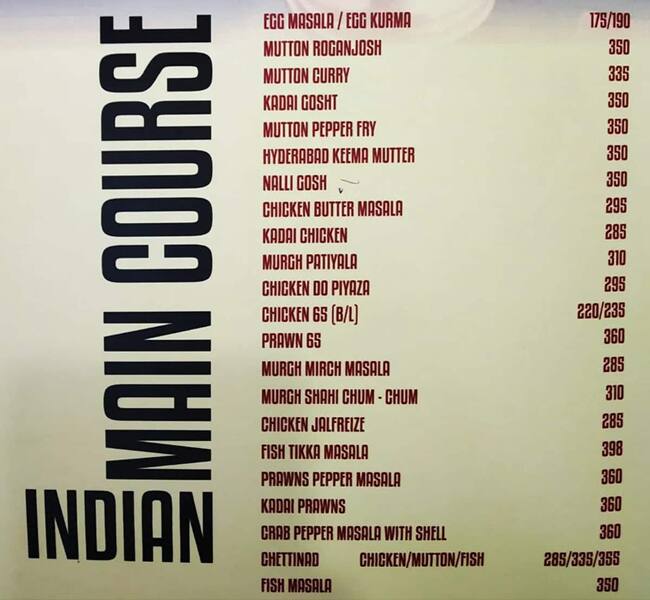 INDIAN
MAIN COURSE
EGG MASALA / EGG KURMA 175/190
MUTTON ROGANJOSH 350
MUTTON CURRY 335
KADAI GOSHT 350
MUTTON PEPPER FRY 350
HYDERABAD KEEMA MUTTER 350
NALLI GOSH 350
CHICKEN BUTTER MASALA 295
KADAI CHICKEN 285
MURGH PATIYALA 310
CHICKEN DO PIYAZA 295
CHICKEN 65 (B/L) 220/235
PRAWN 65 360
MURGH MIRCH MASALA 285
MURGH SHAHI CHUM - CHUM 310
CHICKEN JALFREIZE 285
FISH TIKKA MASALA 398
PRAWNS PEPPER MASALA 360
KADAI PRAWNS 360
CRAB PEPPER MASALA WITH SHELL 360
CHETTINAD CHICKEN/MUTTON/FISH 285/335/355
FISH MASALA 350